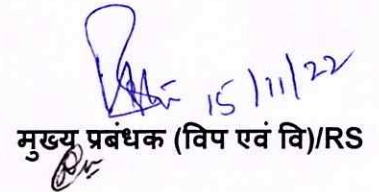 15/11/22
मुख्य प्रबंधक (विप एवं वि)/RS